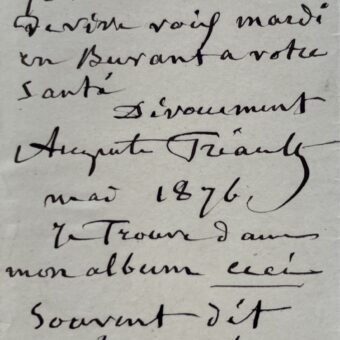 De vive voix mardi
en Buvant a votre
santé
Dévouement
Auguste Tréault
mai 1876,
Je Trouve dans
mon album ceci
Souvent dit